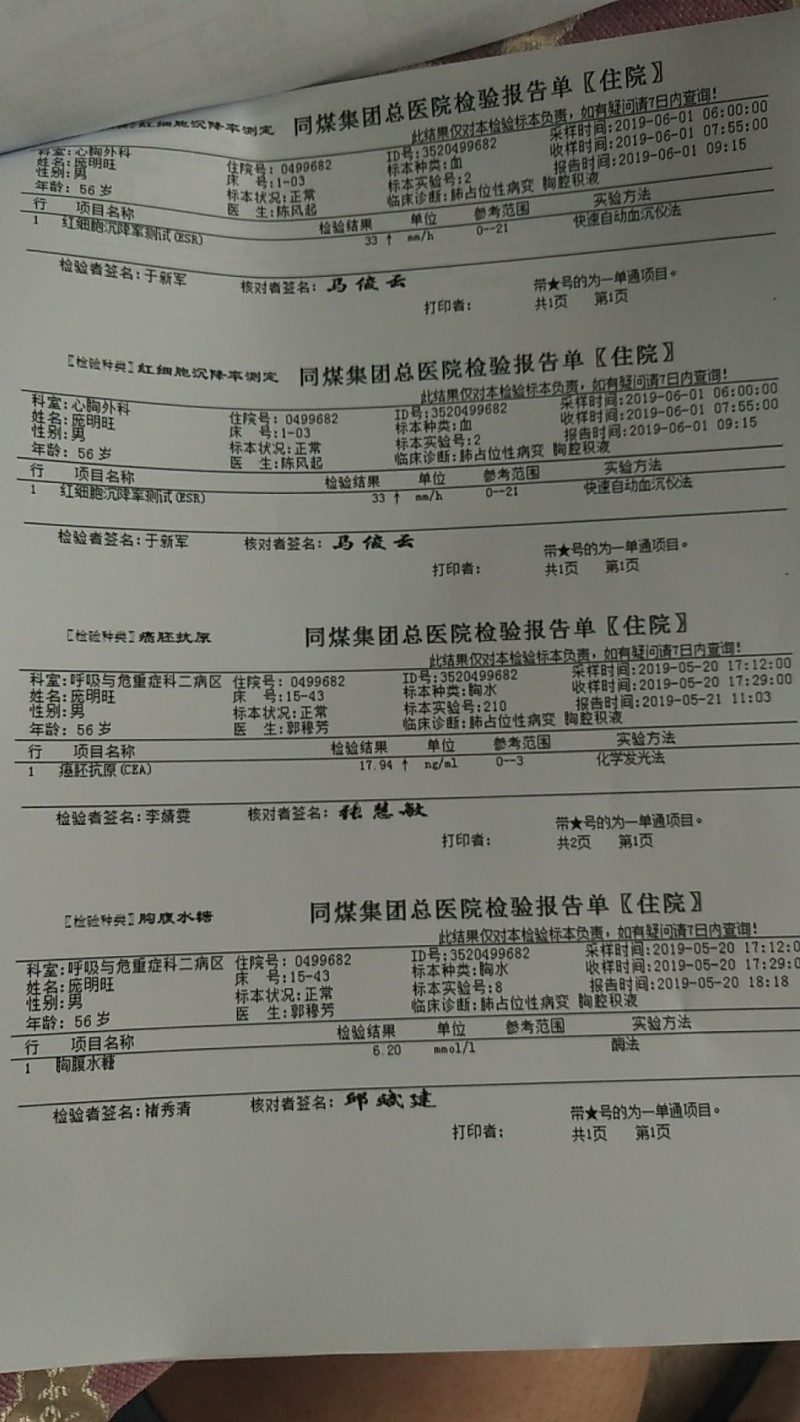 红细胞沉降率测定 同煤集团总医院检验报告单〖住院〗
此结果仅对本检验标本负责，如有疑问请7日内查询！
科室:心胸外科 住院号: 0499682 ID号:3520499682 采样时间:2019-06-01 06:00:00
姓名:庞明旺 床 号:1-03 标本种类:血 收样时间:2019-06-01 07:55:00
性别:男 标本状况:正常 标本实验号:2 报告时间:2019-06-01 09:15
年龄: 56 岁 医 生:陈风起 临床诊断:肺占位性病变 胸腔积液
行 项目名称 检验结果 单位 参考范围 实验方法
1 红细胞沉降率测试(ESR) 33 ↑ mm/h 0--21 快速自动血沉仪法
检验者签名:于新军 核对者签名: 马俊云 带★号的为一单通项目。
打印者: 共1页 第1页
〖检验种类〗红细胞沉降率测定 同煤集团总医院检验报告单〖住院〗
此结果仅对本检验标本负责，如有疑问请7日内查询！
科室:心胸外科 住院号: 0499682 ID号:3520499682 采样时间:2019-06-01 06:00:00
姓名:庞明旺 床 号:1-03 标本种类:血 收样时间:2019-06-01 07:55:00
性别:男 标本状况:正常 标本实验号:2 报告时间:2019-06-01 09:15
年龄: 56 岁 医 生:陈风起 临床诊断:肺占位性病变 胸腔积液
行 项目名称 检验结果 单位 参考范围 实验方法
1 红细胞沉降率测试(ESR) 33 ↑ mm/h 0--21 快速自动血沉仪法
检验者签名:于新军 核对者签名: 马俊云 带★号的为一单通项目。
打印者: 共1页 第1页
〖检验种类〗癌胚抗原 同煤集团总医院检验报告单〖住院〗
此结果仅对本检验标本负责，如有疑问请7日内查询！
科室:呼吸与危重症科二病区 住院号: 0499682 ID号:3520499682 采样时间:2019-05-20 17:12:00
姓名:庞明旺 床 号:15-43 标本种类:胸水 收样时间:2019-05-20 17:29:00
性别:男 标本状况:正常 标本实验号:210 报告时间:2019-05-21 11:03
年龄: 56 岁 医 生:郭穆芳 临床诊断:肺占位性病变 胸腔积液
行 项目名称 检验结果 单位 参考范围 实验方法
1 癌胚抗原(CEA) 17.94 ↑ ng/ml 0--3 化学发光法
检验者签名:李婧雯 核对者签名: 张慧敏 带★号的为一单通项目。
打印者: 共2页 第1页
〖检验种类〗胸腹水糖 同煤集团总医院检验报告单〖住院〗
此结果仅对本检验标本负责，如有疑问请7日内查询！
科室:呼吸与危重症科二病区 住院号: 0499682 ID号:3520499682 采样时间:2019-05-20 17:12:0
姓名:庞明旺 床 号:15-43 标本种类:胸水 收样时间:2019-05-20 17:29:0
性别:男 标本状况:正常 标本实验号:8 报告时间:2019-05-20 18:18
年龄: 56 岁 医 生:郭穆芳 临床诊断:肺占位性病变 胸腔积液
行 项目名称 检验结果 单位 参考范围 实验方法
1 胸腹水糖 6.20 mmol/l 酶法
检验者签名:褚秀清 核对者签名: 邱斌建 带★号的为一单通项目。
打印者: 共1页 第1页